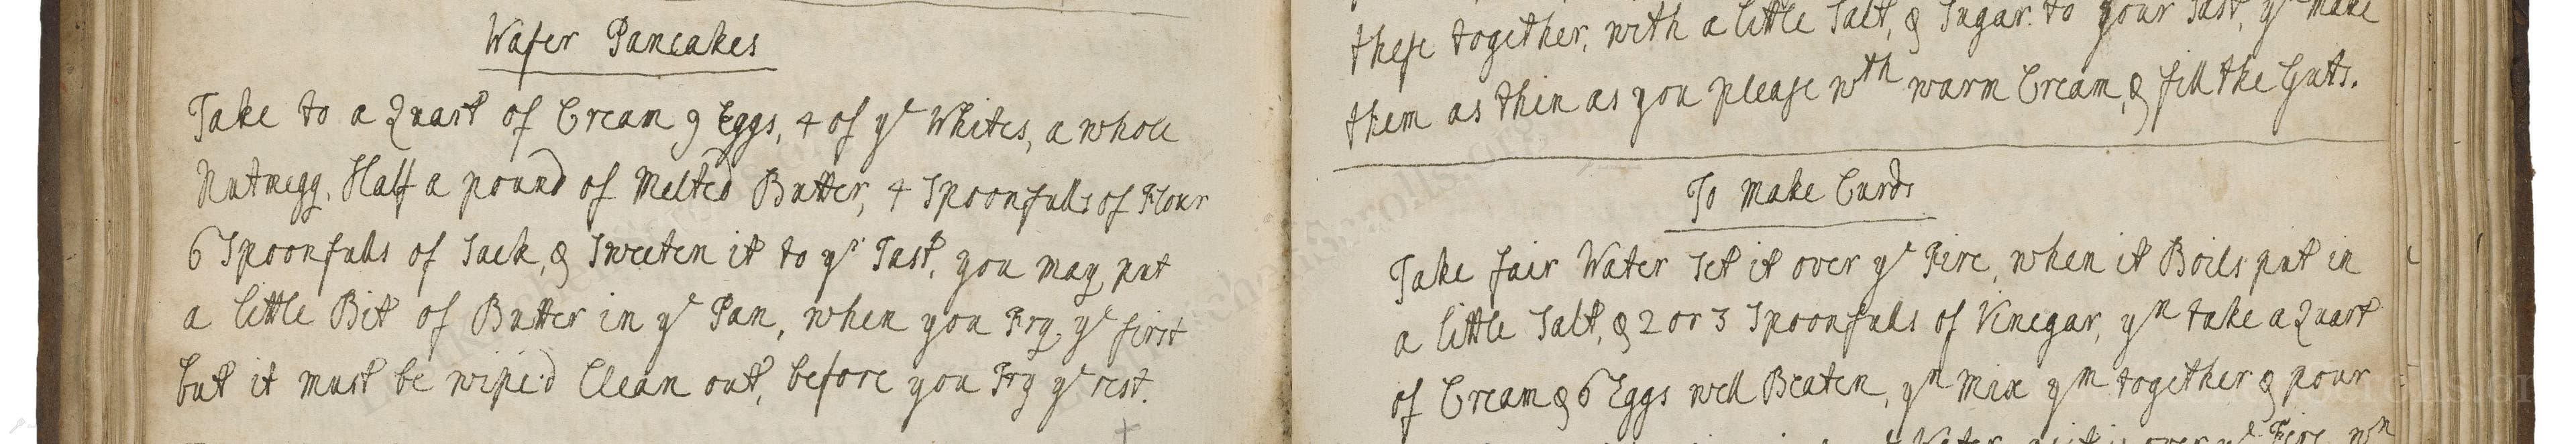 Wafer Pancakes
Take to a Quart of Cream 9 Eggs, 4 of ye Whites, a whole
Nutmegg. Half a pound of Melted Butter, 4 Spoonfulls of Flour
6 Spoonfulls of Sack, & Sweeten it to yr Tast, you may put
a little Bit of Butter in ye Pan, when you Fry ye first
but it must be wipe'd Clean out, before you Fry ye rest.
these together, with a little Salt, & Sugar to your Tast, yn make
them as thin as you please wth warm Cream, & fill the Guts.
To Make Curds
Take fair Water Set it over ye Fire, when it Boils put in
a little Salt, & 2 or 3 Spoonfulls of Vinegar, yn take a Quart
of Cream & 6 Eggs well Beaten, yn Mix ym together & pour
Water, as it is over ye Fire, wn